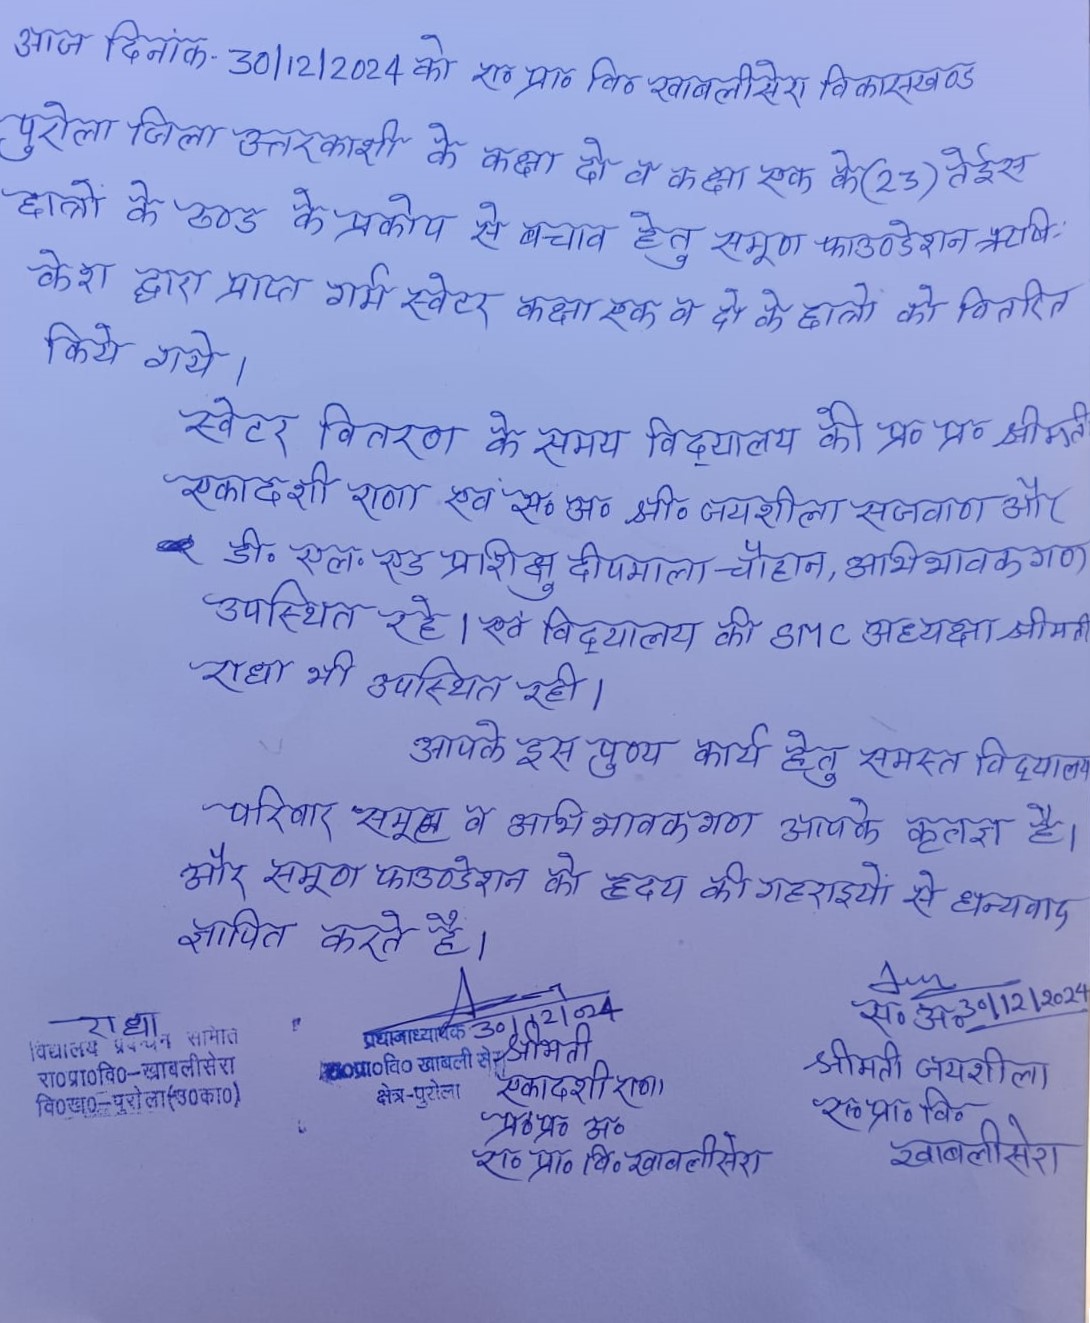 आज दिनांक- 30/12/2024 को रा० प्रा० वि० खाबलीसेरा विकासखण्ड
पुरोला जिला उत्तरकाशी के कक्षा दो व कक्षा एक के (23) तेईस
छात्रों के ठण्ड के प्रकोप से बचाव हेतु समूण फाउण्डेशन ऋषि-
केश द्वारा प्राप्त गर्म स्वेटर कक्षा एक व दो के छात्रों को वितरित
किये गये।
स्वेटर वितरण के समय विद्यालय की प्र० प्र० श्रीमती
एकादशी राणा एवं स० अ० श्री० जयशीला सजवाण और
डी० एल० एड प्रशिक्षु दीपमाला चौहान, अभिभावकगण
उपस्थित रहे। एवं विद्यालय की SMC अध्यक्षा श्रीमती
राधा भी उपस्थित रही।
आपके इस पुण्य कार्य हेतु समस्त विद्यालय
परिवार समूह व अभिभावकगण आपके कृतज्ञ है।
और समूण फाउण्डेशन को ह्रदय की गहराइयों से धन्यवाद
ज्ञापित करते है।
राधा
विद्यालय प्रबन्धन समिति
रा०प्रा०वि०-खाबलीसेरा
वि०ख०-पुरोला(उ०का०)
प्रधानाध्यापक 30/12/2024
रा०प्रा०वि० खाबली सेरा श्रीमती
क्षेत्र-पुरोला एकादशी राणा
प्र० प्र० अ०
रा० प्रा० वि० खाबलीसेरा
स० अ० 30/12/2024
श्रीमती जयशीला
रा० प्रा० वि०
खाबलीसेरा